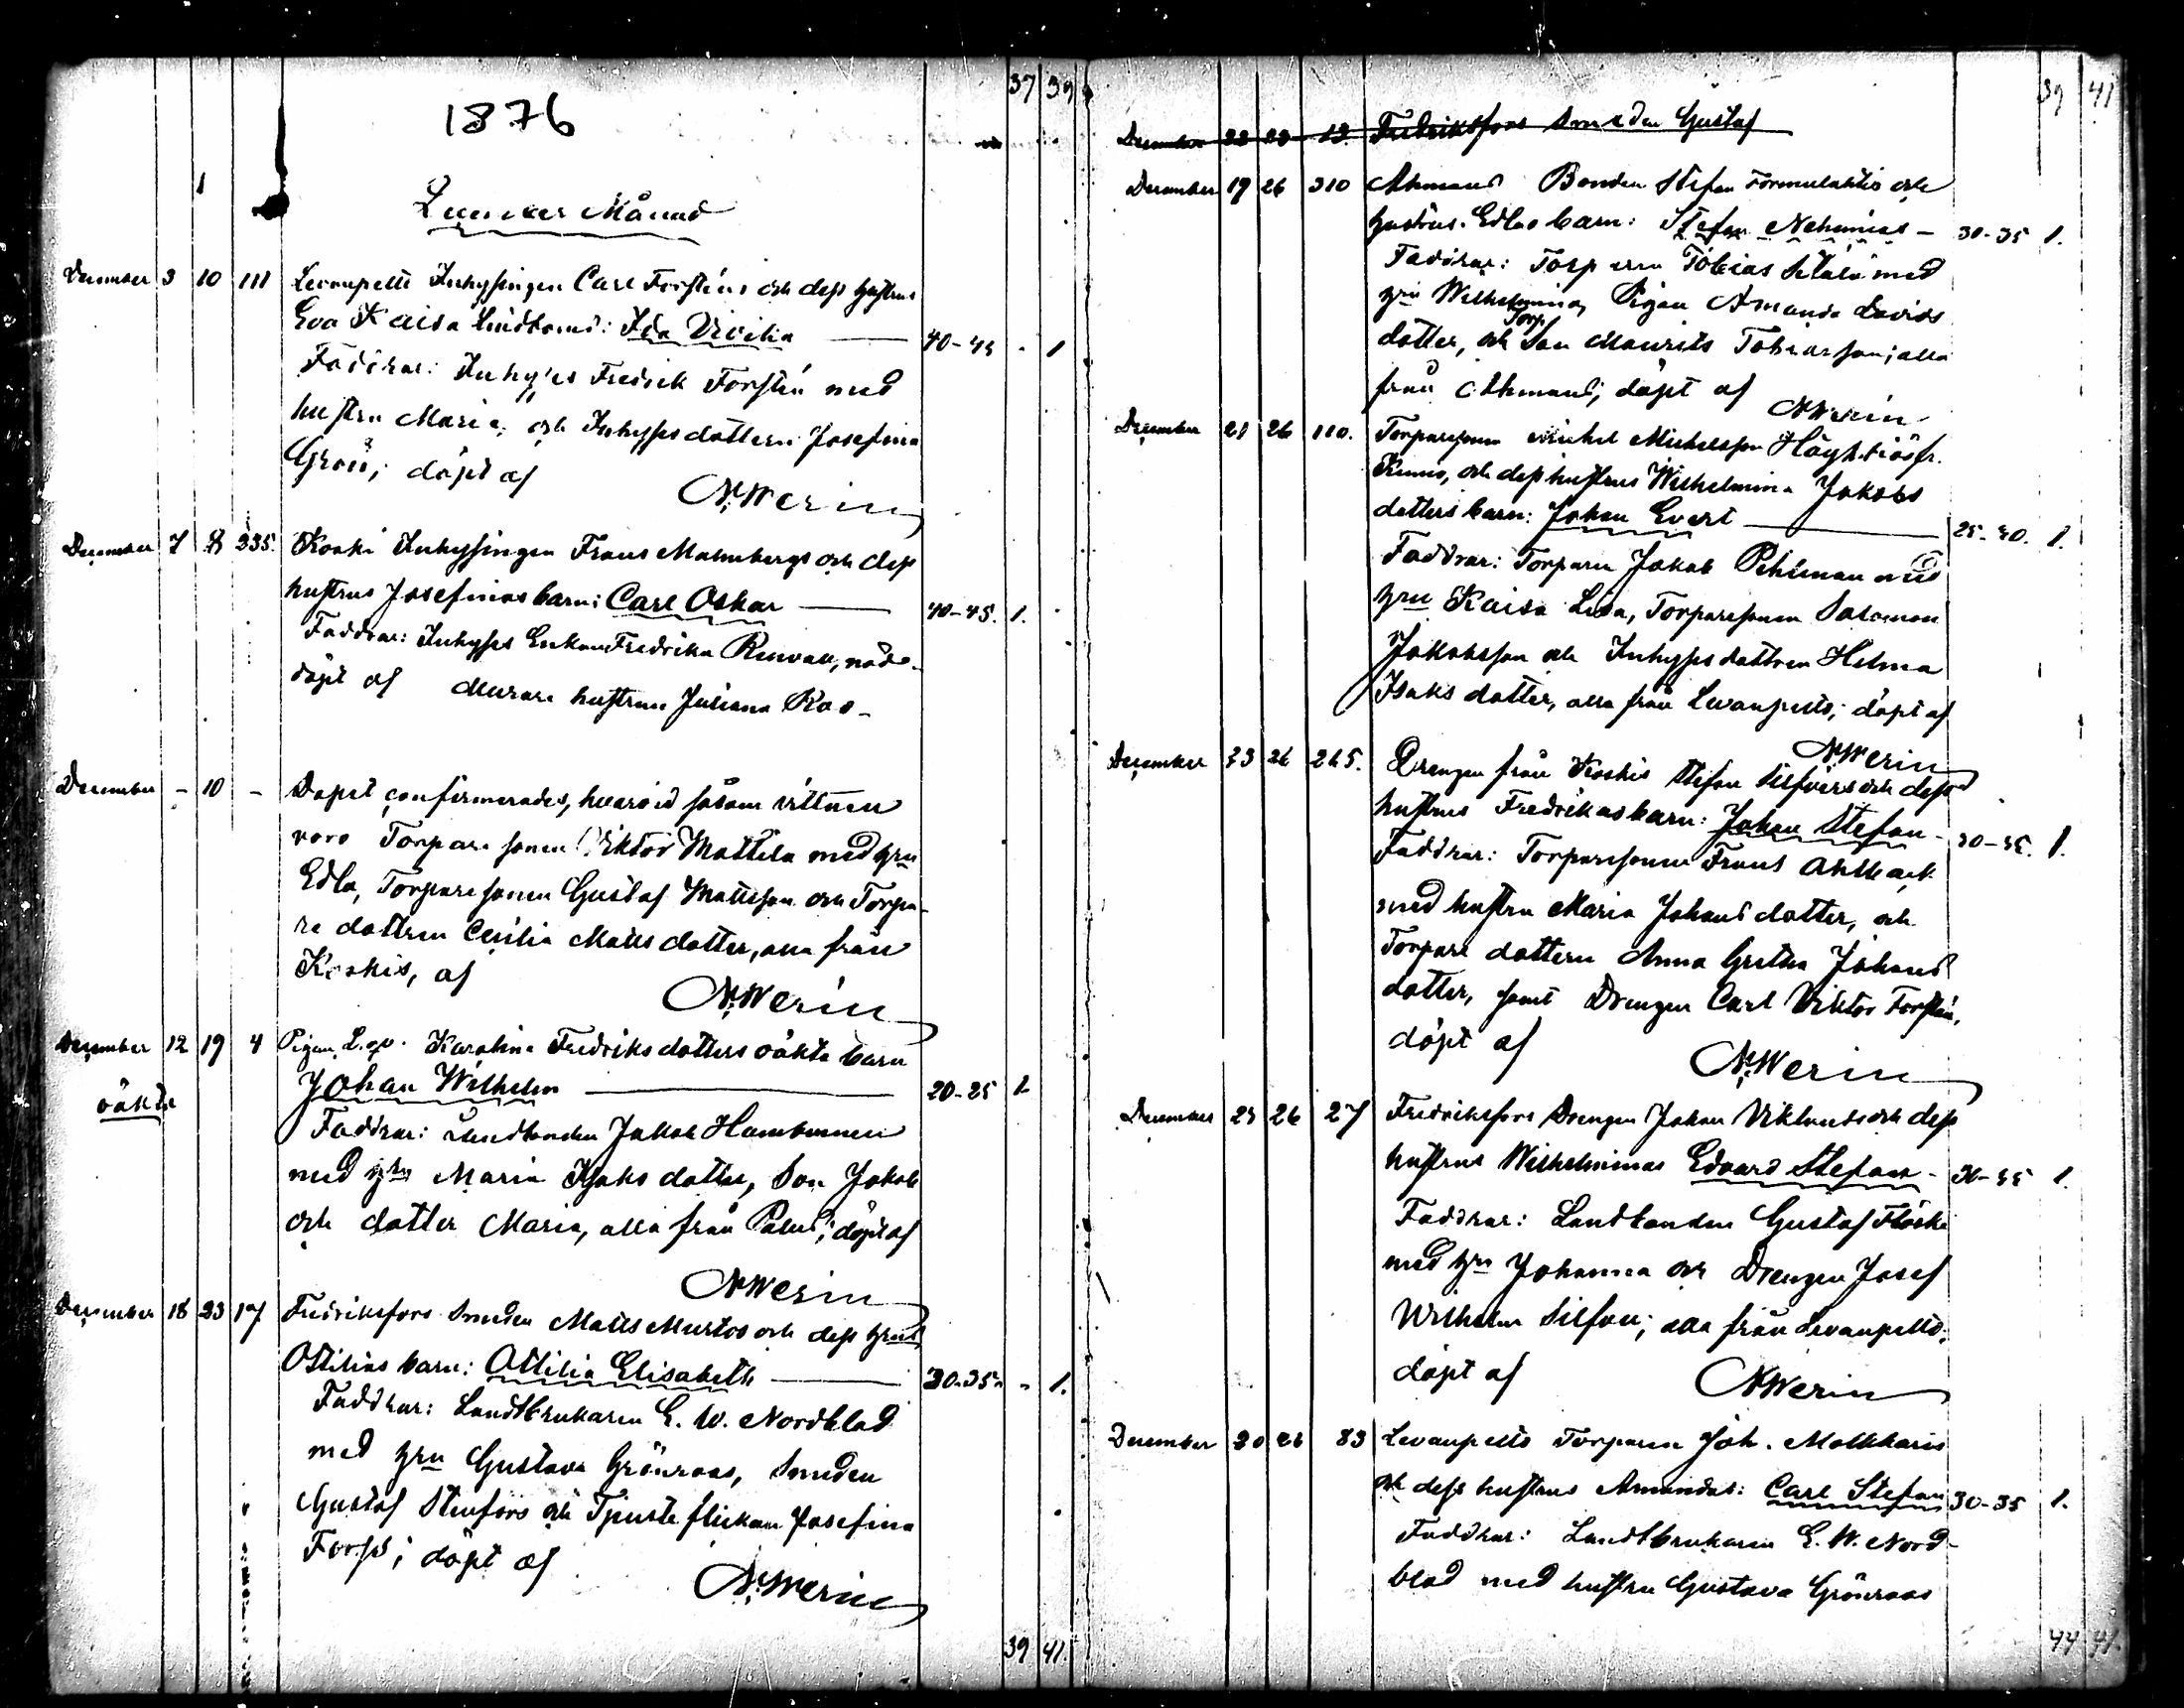 37 39
1876
1
December Månad
December 3 10 111 Levanpelto Inhysingen Carl Forsténs och dess hustrus
Eva Kaisa Lindroos: Ida Cicilia — 40-45 - 1
Faddrar: Inhyses Fredrik Forstén med
hustru Maria, och Inhysesdottern Josefina
Grön; döpt af
N. Werin
December 7 8 335. Koski Inhysingen Frans Malmbergs och dess
hustrus Josefinas barn: Carl Oskar — 40-45. 1.
Faddrar: Inhyses Enkan Fredrika Renvall, nöd-
döpt af Murare hustrun Juliana Roo-
December - 10 - Dopet confirmerades, hvarvid såsom vittnen
voro Torpare sonen Viktor Mattila med hru
Edla, Torparesonen Gustaf Mattsson och Torpa-
re dottren Cecilia Matts dotter, alla från
Koskis, af
N. Werin
December 12 19 4 Pigan L. Karolina Fredriksdotters oäkta barn
oäkta Johan Wilhelm — 20-25 1.
Faddrar: Landbonden Jakob Hamberinen
med hru Maria Isaks dotter, Son Jakob
och dotter Maria, alla från Palus; döpt af
N. Werin
December 18 23 17 Fredriksfors Smeden Matts Murtos och dess hrus
Ottilias barn: Ottilia Elisabeth — 30-35 - 1.
Faddrar: Landtbrukaren E. W. Nordblad
med hru Gustava Grönroos, Smeden
Gustaf Stenfors och Tjenste flickan Josefina
Forss; döpt af
N. Werin
39 41.
39 41
December 22 23 12. Fredriksfors Smeden Gustaf
December 19 26 310 Ahmaus Bonden Stefan och
hustrus Edlas barn: Stefan Nehemias - 30-35 1.
Faddrar: Torparen Tobias Setälä med
hru Wilhelmina, Pigan Amanda Davids
Torp.
dotter, och Son Maurits Tobiasson; alla
från Ahmaus; döpt af
N. Werin
December 21 26 110. Torparesonen Michel Michelsson Högh. fr.
Kunno, och dess hustrus Wilhelmina Jakobs
dotters barn: Johan Evert — 25-30. 1.
Faddrar: Torparen Jakob Pihlman med
hru Kaisa Lisa, Torparesonen Salomon
Jakobsson och Inhysesdottren Hilma
Isaks dotter, alla från Levanpelto; döpt af
N. Werin
December 23 26 265. Drengen från Koskis Stefan Silfvers och dess
hustrus Fredrikas barn: Johan Stefan - 30-35. 1.
Faddrar: Torparesonen Frans Ahlbäck
med hustru Maria Johans dotter, och
Torpare dottern Anna Gretha Johans
dotter, samt Drengen Carl Viktor Forstén,
döpt af
N. Werin
December 23 26 27 Fredriksfors Drengen Johan Viklunds och dess
hustrus Wilhelminas Edvard Stefan - 30-35 1.
Faddrar: Landbonden Gustaf Flöski
med hru Johanna och Drengen Josef
Wilhelm Silfver; alla från Levanpelto;
döpt af
N. Werin
December 20 26 83 Levanpelto Torparen Joh. Malkkaris
och dess hustrus Amandas: Carl Stefan 30-35 1.
Faddrar: Landtbrukaren E. W. Nord-
blad med hustru Gustava Grönroos
44 41.